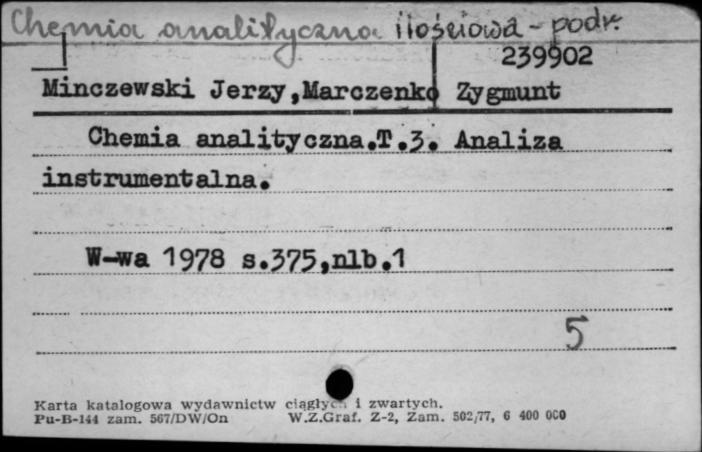 Chemia analityczna ilościowa - podr.
239902
Minczewski Jerzy,Marczenko Zygmunt
Chemia analityczna.T.3. Analiza
instrumentalna.
W-wa 1978 s.375,nlb.1
5
Karta katalogowa wydawnictw ciągłych i zwartych.
Pu-B-144 zam. 567/DW/On W.Z.Graf. Z-2, Zam. 502/77, 6 400 000